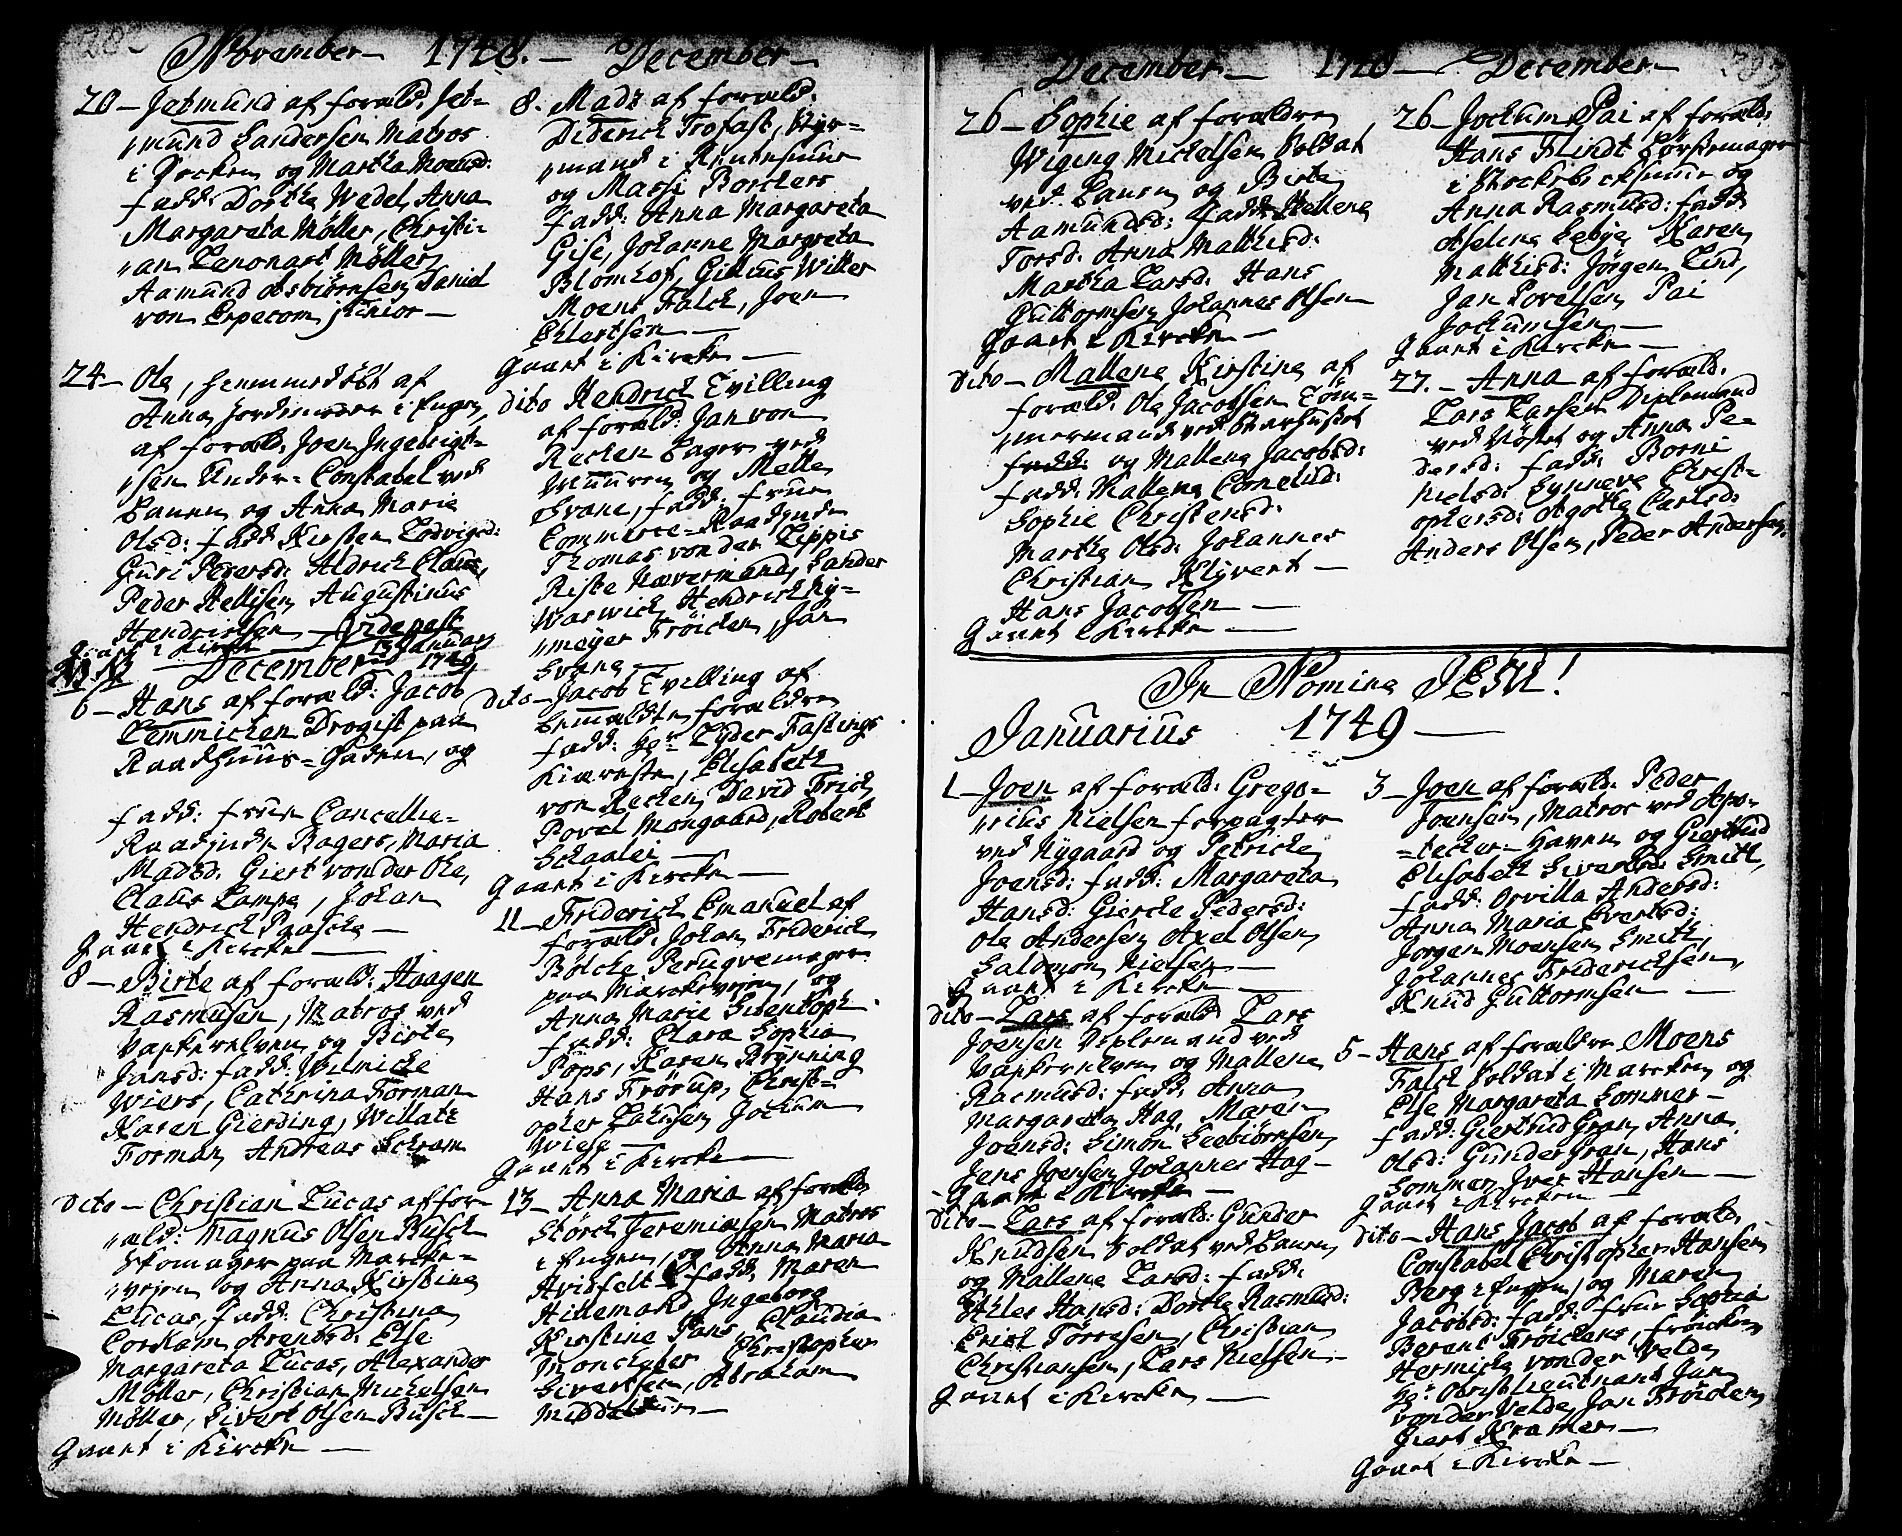 November — 1748. — December —
20 — Jetmund af foræld. Jet-
mund Sandersen Matros
i Øecken og Martha Moensd:
fadd: Dorthe Wedel, Anna
Margareta Möller, Christi-
an Lenonart Möller,
Aamund Asbiörnsen, Daniel
von Erpecom junior —
24 — Ole, hiemmedöbt af
Anna Jordemoder i Engen,
af foræld. Joen Ingebrigt-
sen Under-Constabel ved
og Anna Marie
Olsd: fadd Kirsten Lodvigsd:
Guri Pedersd: Aldrich Claus,
Peder Hellisen, Augustinus
Hendrichsen —
gaaet i Kircke
13 Januarij
December 1749
6 — Hans af foræld: Jacob
Lemmichen Drogist paa
Raadhuus-Gaden, og
fadd: fruen Cancellie-
Raadinde Ragers, Maria
Madsd. Giert von der Ohe,
Claus Lampe, Johan
Hendrich Paasche —
Gaaet i Kircke —
8 — Birte af foræld: Haagen
Rasmusen, Matros ved
Vaskerelven og Birte
Jansd: fadd: Wilmicke
Wiers, Cathrina Forman
Karen Gierding, Willatz
Forman, Andreas Schram
dito — Christian Lucas af for-
æld: Magnus Olsen Busch
Skomager paa Marcke-
vejen og Anna Kirstine
Lucas, fadd: Christina
Corham Arentsd: Else
Margareta Lucas, Alexander
Möller, Christian Michelsen
Möller, Sivert Olsen Busch —
Gaaet i Kircke —
8. Madz af foræld.
Diderich Trofast, Styr-
mand i
og Massi Borchers
fadd: Anna Margareta
Gise, Johanne Margreta
Blomhof, Gillius Willer
Moens Falck, Joen
Ehlertsen —
gaaet i Kircke —
dito Hendrich Tvilling
af foræld: Jan von
Recken Bager ved
Muuren og Mette
Svane, fadd: fruen
Commerce-Raadinde
Thomas von der Lippis
Riste Nævermand, Sander
Warwich, Hendrich Ny-
meyer Fröichen, Jan
Svane —
dito — Jacob Tvilling af
bemældte forældre
fadd: Hr. Lyder Fastings
Kiæreste, Elisabeth
von Recken, David Frich
Povel Mongaard, Robert
—
gaaet i Kircke —
11 — Friderich Emanuel af
foræld. Johan Friderich
Bölche Perugvemager
paa Marckevejen, og
Anna Marie
fadd: Clara Sophia
Pöps, Karen Brynning
Hans Frörup, Christ-
opher Lahusen, Jochum
Wiese —
Gaaet i Kircke —
13 — Anna Maria af foræld:
Störck Jeremiasen Matros
i Engen, og Anna Maria
Hvidfelt fadd: Maren
Hillemand, Ingeborg
Kirstine Pans, Claudia
Christopher
Sivertsen, Abraham
—
December — 1748 — December —
26 — Sophie af forældre
Wiging Michelsen Soldat
ved og Birte
Aamundsd: fadd: Hellene
Torsd: Anna Mathisd:
Martha Larsd: Hans
Guttormsen, Johannes Olsen
gaaet i Kircke —
Dito — Mallene Kirstine af
foræld: Ole Jacobsen Töm-
mermand ved
fadd: og Mallene Jacobsd:
fadd: Mallene Cornelisd:
Sophie Christensd:
Marthe Olsd: Johannes
Christian Klyvert —
Hans Jacobsen —
Gaaet i Kircke —
26 — Jochum Pai af foræld.
Hans Flindt Börstemager
i og
Anna Rasmusd: fadd
Aselene Lebye, Karen
Mathisd: Jörgen Lind,
Jan Povelsen, Pai
Jochumsen —
gaaet i Kircke —
27. — Anna af foræld.
Lars Larsen Diplemand
ved og Anna Pe-
dersd: fadd: Borni
Nielsd: Synneve Christ-
ophersd: Agothe Carlsd:
Anders Olsen, Peder Andersen,
In Nomine JESU!
Januarius 1749 —
1 — Joen af foræld: Grego-
rius Nielsen forpagter
ved Nygaard og Petricke
Joensd: fadd: Margareta
Hansd: Giercke Pedersd:
Ole Andersen, Axel Olsen,
Salomon Nielsen —
Gaaet i Kircke —
dito — Lars af foræld Lars
Joensen ved
Vaskerelven og Mallene
Rasmusd: fadd: Anna
Margareta Hag, Maren
Joensd: Simon Seebiörnsen,
Jens Joensen, Johannes Hag —
gaaet i Kircke —
Dito — Lars af foræld: Gunder
Knudsen Soldat ved
og Mallene Larsd: fadd:
Ehler Hansd: Dorthe Rasmusd:
Erich Törresen, Christian
Christiansen, Lars Nielsen —
Gaaet i Kircke —
3 — Joen af foræld. Peder
Joensen, Matros ved Apo-
tecker-Haven og Giertrud
Elisabeth Sivertsd: Smith,
fadd: Orvilla Andersd:
Anna Maria Evertsd:
Jörgen Moensen Smith,
Johannes Friderichsen,
Knud Guttormsen —
5 — Hans af forældre Moens
Falck Soldat i Marcken og
Else Margareta Sommer —
fadd: Giertrud Gran, Anna
Olsd: Gunder Gran, Hans
Sommer, Iver Hansen —
gaaet i Kircken —
dito — Hans Jacob af foræld.
Constabel Christopher Hansen
Berg i Engen, og Maren
Jacobsd: fadd: frue Sophia
Berent Fröichens, fröicken
Hermicke von der Velde,
Hr. Obristlieutnant Jan
von der Velde, Jan Fröichen,
Giert Kramer —
Gaaet i Kircke —